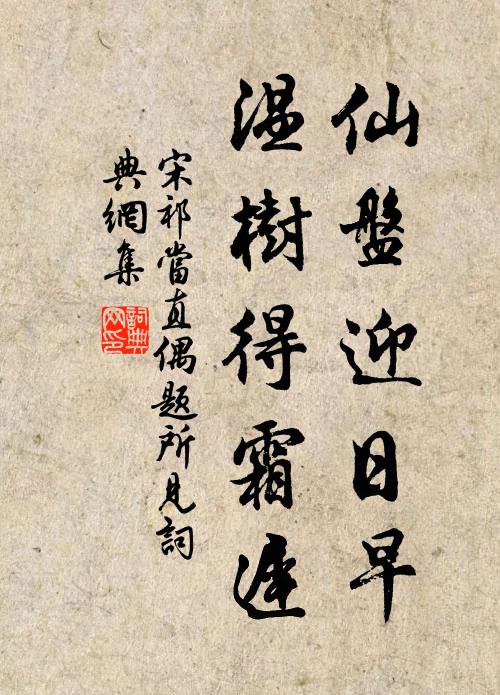 仙盤迎日早
温樹得霜遲
宋祁當直偶題所見詞
典網集
詞典
网印